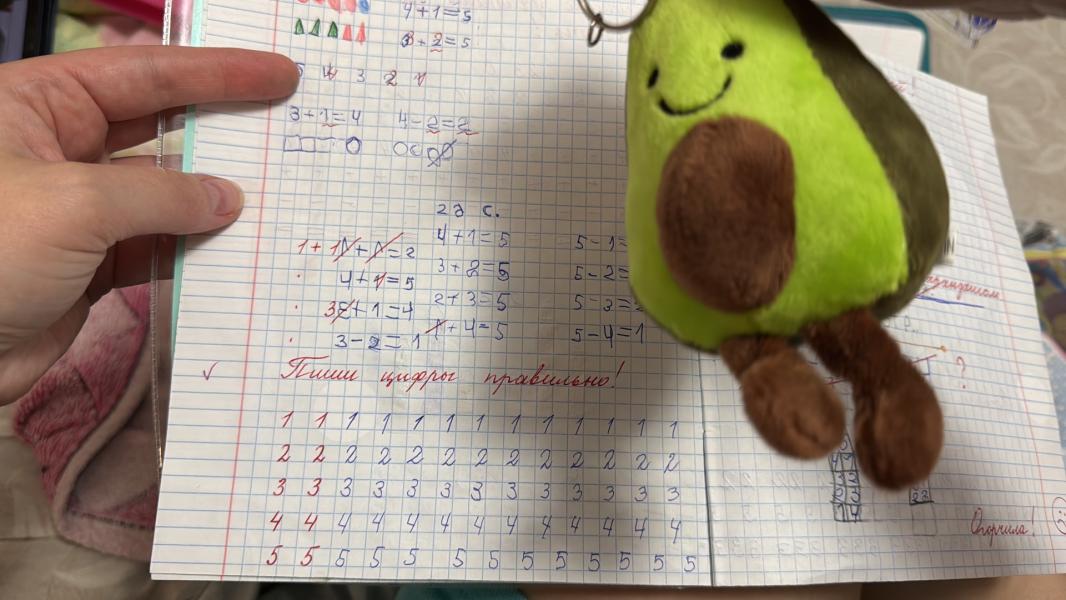 4+1=5
3+2=5
5 4 3 2 1
3+1=4 4-2=2
23 с.
1+1=2 4+1=5 5-1=
4+1=5 3+2=5 5-2=
3+1=4 2+3=5 5-3=
3-2=1 1+4=5 5-4=1
Пиши цифры правильно!
1 1 1 1 1 1 1 1 1 1 1 1 1
2 2 2 2 2 2 2 2 2 2 2 2 2
3 3 3 3 3 3 3 3 3 3 3 3 3
4 4 4 4 4 4 4 4 4 4 4 4 4
5 5 5 5 5 5 5 5 5 5 5 5 5
?
Огорчила!